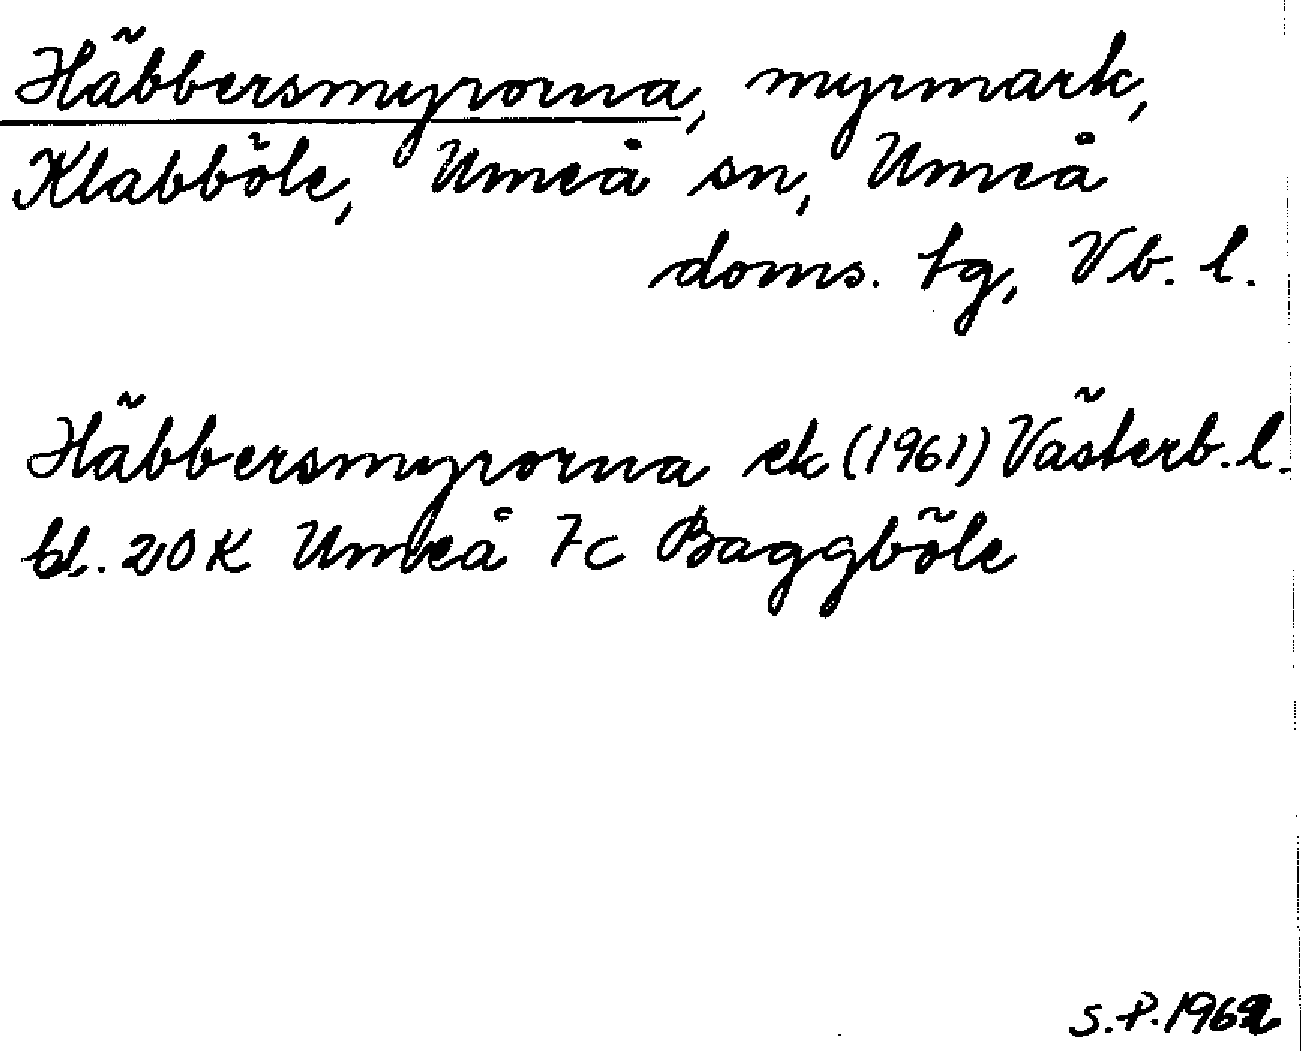 Häbbersmyrorna, myrmark,
Klabböle, Umeå sn, Umeå
doms. tg, Vb. l.
Häbbersmyrorna ek (1961) Västerb. l.
bl. 20 K Umeå 7c Baggböle
S.P. 1962